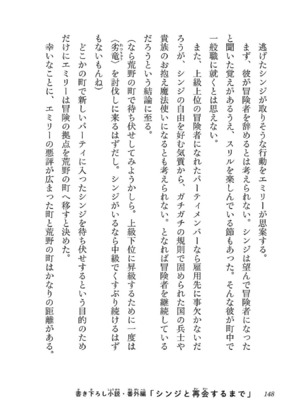 逃げたシンジが取りそうな行動をエミリーが思案する。
まず、彼が冒険者を辞めるとは考えられない。シンジは望んで冒険者になった
と聞いた覚えがあるうえ、スリルを楽しんでいる節もあった。そんな彼が町中で
一般職に就くとは思えない。
また、上級上位の冒険者になれたパーティメンバーなら雇用先に事欠かないだ
ろうが、シンジの自由を好む気質から、ガチガチの規則で固められた国の兵士や
貴族のお抱え魔法使いになるとも考えられない。となれば冒険者を継続している
だろうという結論に至る。
(なら荒野の町で待ち伏せしてみようかしら。上級下位に昇級するために一度は
〈劣竜〉を討伐しに来るはずだし、シンジがいるなら中級でくすぶり続けるはず
もないもんね)
どこかの町で新しいパーティに入ったシンジを待ち伏せするという目的のため
だけにエミリーは冒険の拠点を荒野の町へ移すと決めた。
幸いなことに、エミリーの悪評が広まった町と荒野の町はかなりの距離がある。
書き下ろし小説・番外編「シンジと再会するまで」 148